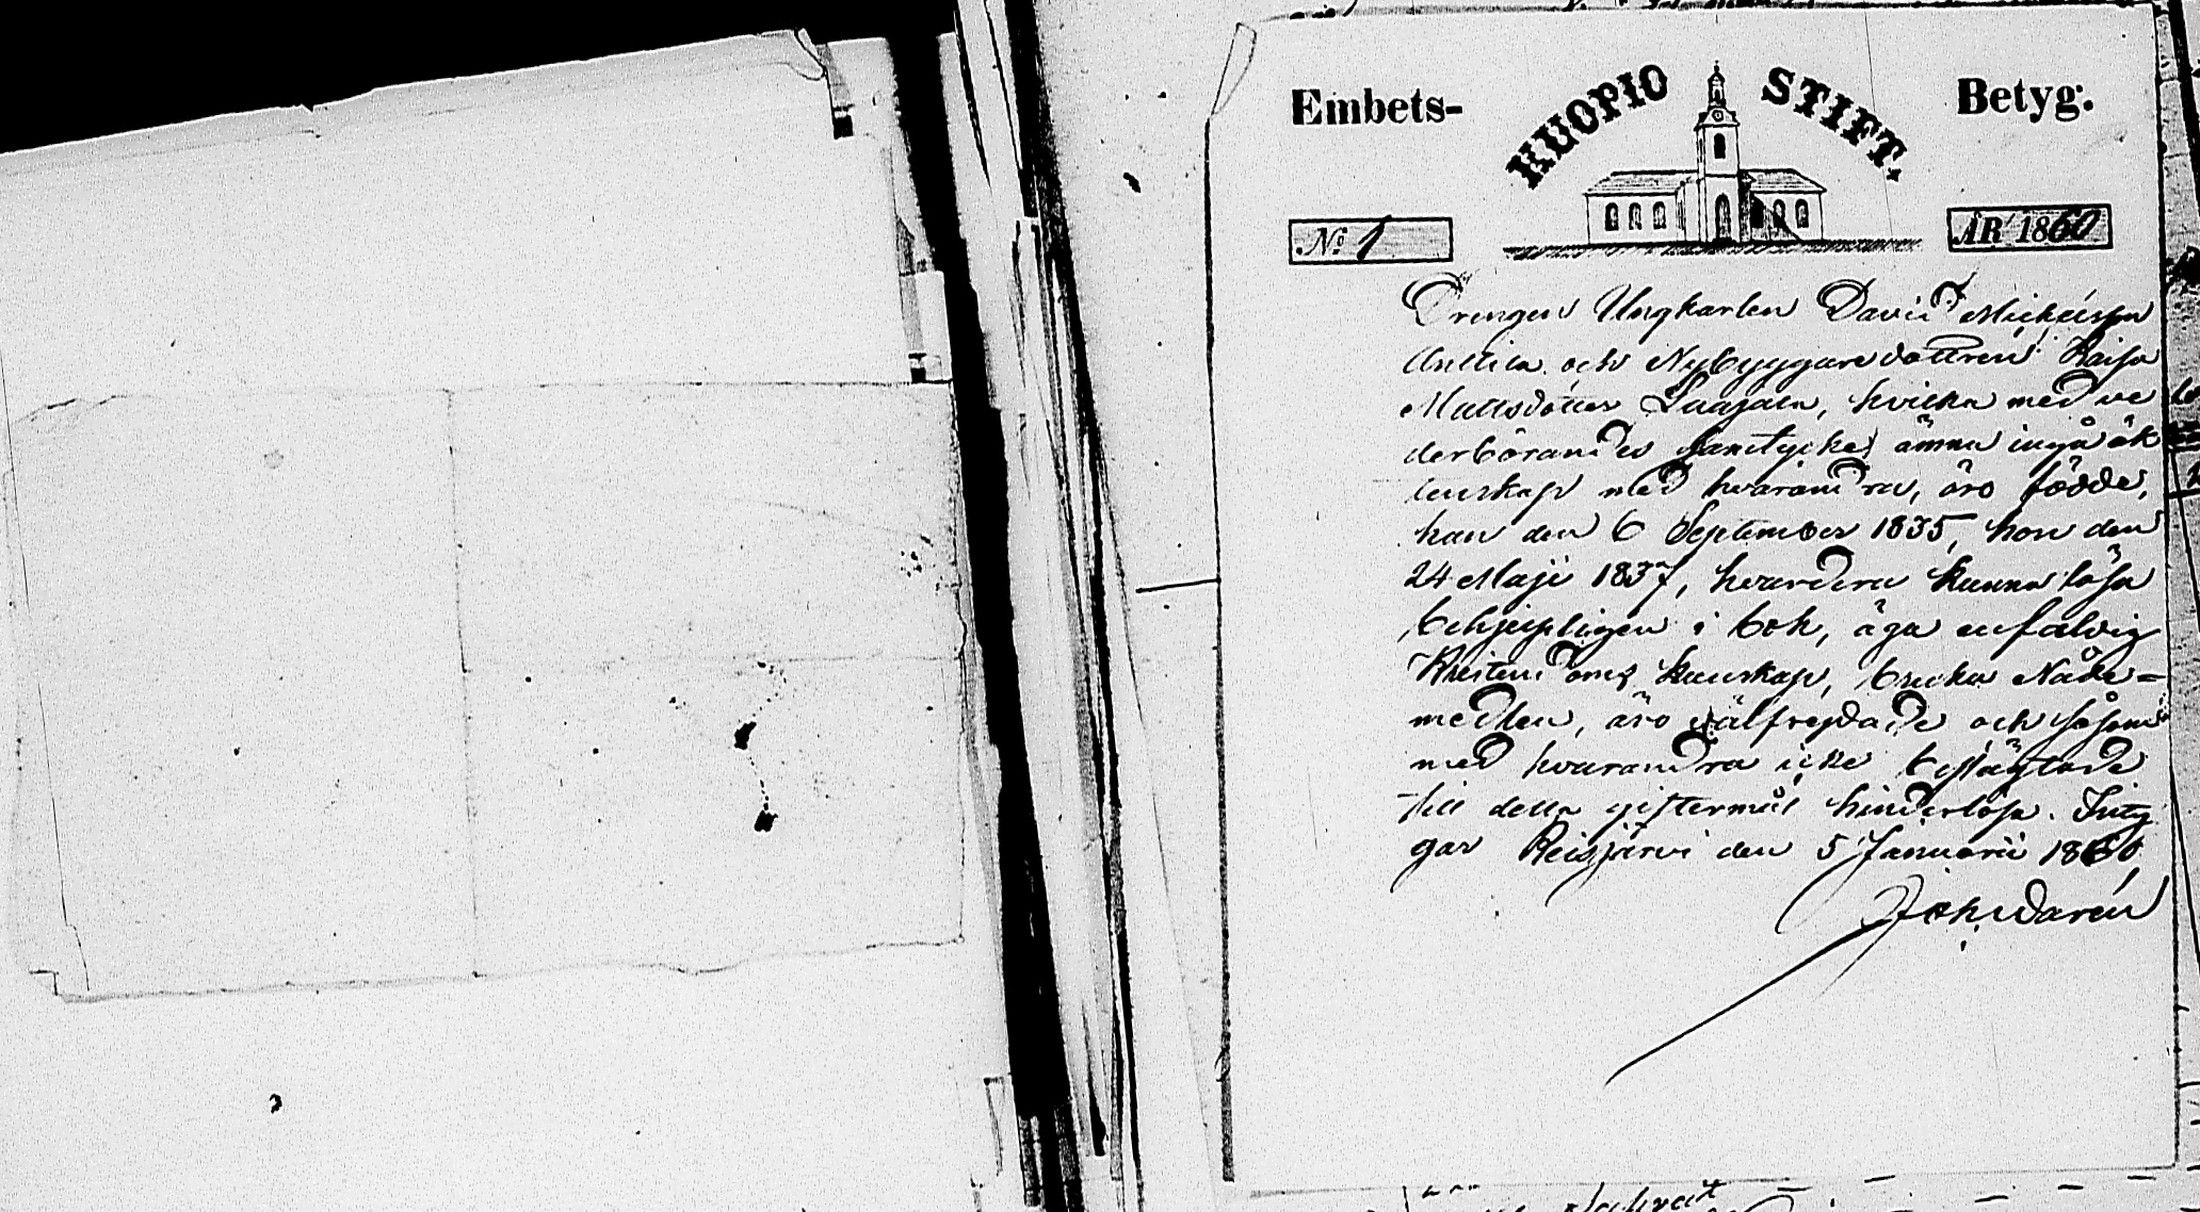 Embets- KUOPIO STIFT. Betyg.
No 1 ÅR 1860
Drengen Ungkarlen David Mickelsson
Anttila och Nybyggaredottren Kaisa
Mattsdotter Saajala, hvilka med ve
derbörandes samtycke ämna ingå äk
tenskap med hvarandra, äro födde,
han den 6 September 1835, hon den
24 Maji 1837, hvardera kunna läsa
behjelpligen i bok, äga enfaldig
Kristendoms kunskap, bruka Nåde-
medlen, äro välfrejdade och såsom
med hvarandra icke beslägtade
till detta giftermål hinderlösa. Inty
gar Reisjärvi den 5 Januarii 1860
Joh Udarén